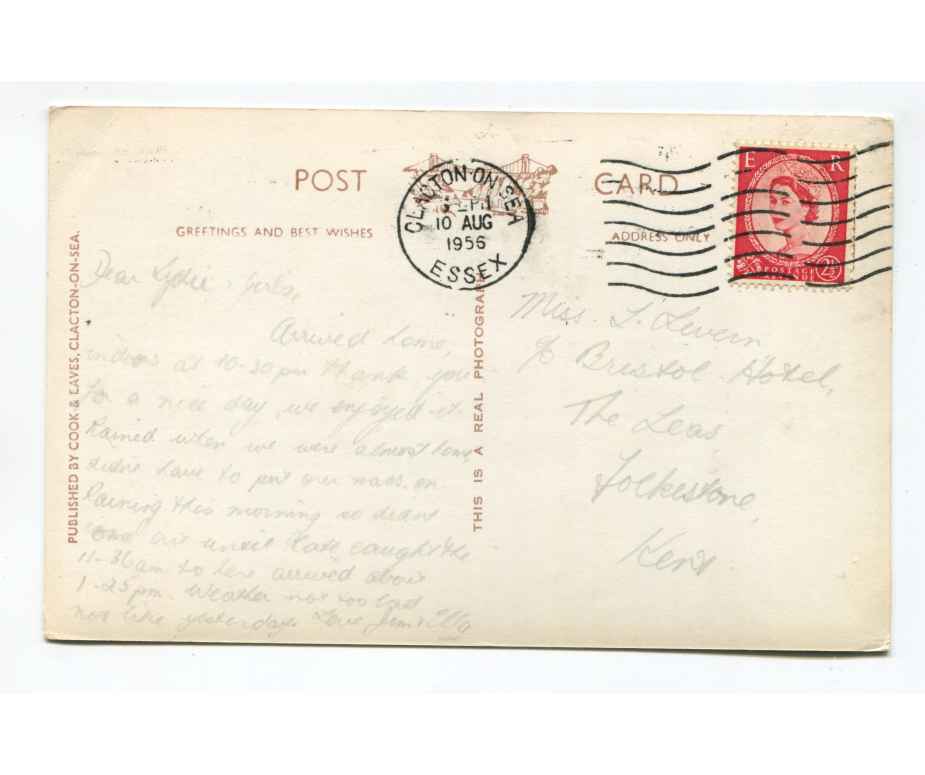 POST CARD
CLACTON-ON-SEA
10 AUG
1956
ESSEX
E R
POSTAGE
2½D
GREETINGS AND BEST WISHES
ADDRESS ONLY
PUBLISHED BY COOK & EAVES, CLACTON-ON-SEA.
THIS IS A REAL PHOTOGRAPH
Dear
Arrived home,
indoors at 10-30 pm thank you
for a nice day, we enjoyed it.
Rained when we were almost home
have to put our macs on
Raining this morning so
out until caught the
11-36 am to here arrived about
1-25 pm. Weather not too bad
not like yesterday. Love Jim & Ella
Miss. L. Levern
c/o Bristol Hotel,
The Leas
Folkestone,
Kent